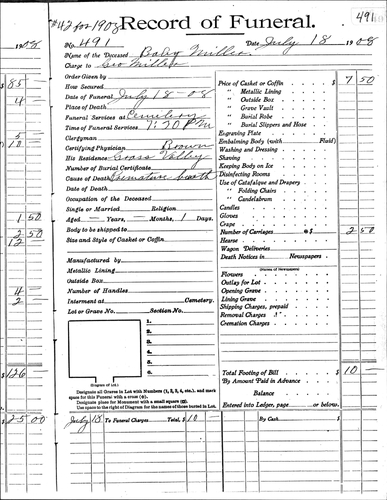 #42 for 1908
Record of Funeral.
491
1908
No. 491
Date July 18 1908
Name of the Deceased Baby Miller
Charge to Geo Miller
Order Given by
How Secured
Date of Funeral July 18-08
Place of Death
Funeral Services at Cemetery
Time of Funeral Services 1:30 P.M
Clergyman
Certifying Physician Brown
His Residence Grass Valley
Number of Burial Certificate
Cause of Death Premature birth
Date of Death
Occupation of the Deceased
Single or Married Religion
Aged — Years, — Months, 1 Days.
Body to be shipped to
Size and Style of Casket or Coffin
Manufactured by
Metallic Lining
Outside Box
Number of Handles
Interment at Cemetery.
Lot or Grave No. Section No.
1.
2.
3.
4.
5.
6.
(Diagram of Lot)
Designate all Graves in Lot with Numbers (1, 2, 3, 4, etc.), and mark
space for this Funeral with a cross (x).
Designate place for Monument with a small square (□).
Use space to the right of Diagram for the names of those buried in Lot.
Price of Casket or Coffin $ 7 50
" Metallic Lining
" Outside Box
" Grave Vault
" Burial Robe
" Burial Slippers and Hose
Engraving Plate
Embalming Body (with Fluid)
Washing and Dressing
Shaving
Keeping Body on Ice
Disinfecting Rooms
Use of Catafalque and Drapery
" Folding Chairs
" Candelabrum
Candles
Gloves
Crape
Number of Carriages @ $ 2 50
Hearse
Wagon Deliveries
Death Notices in Newspapers
(Names of Newspapers)
Flowers
Outlay for Lot
Opening Grave
Lining Grave
Shipping Charges, prepaid
Removal Charges
Cremation Charges
Total Footing of Bill $ 10 —
By Amount Paid in Advance
Balance
Entered into Ledger, page or below.
July 18 To Funeral Charges Total, $ 10 — By Cash
85
4 —
5 —
10
1 50
2 50
12
4 —
2 —
$126
$25 00